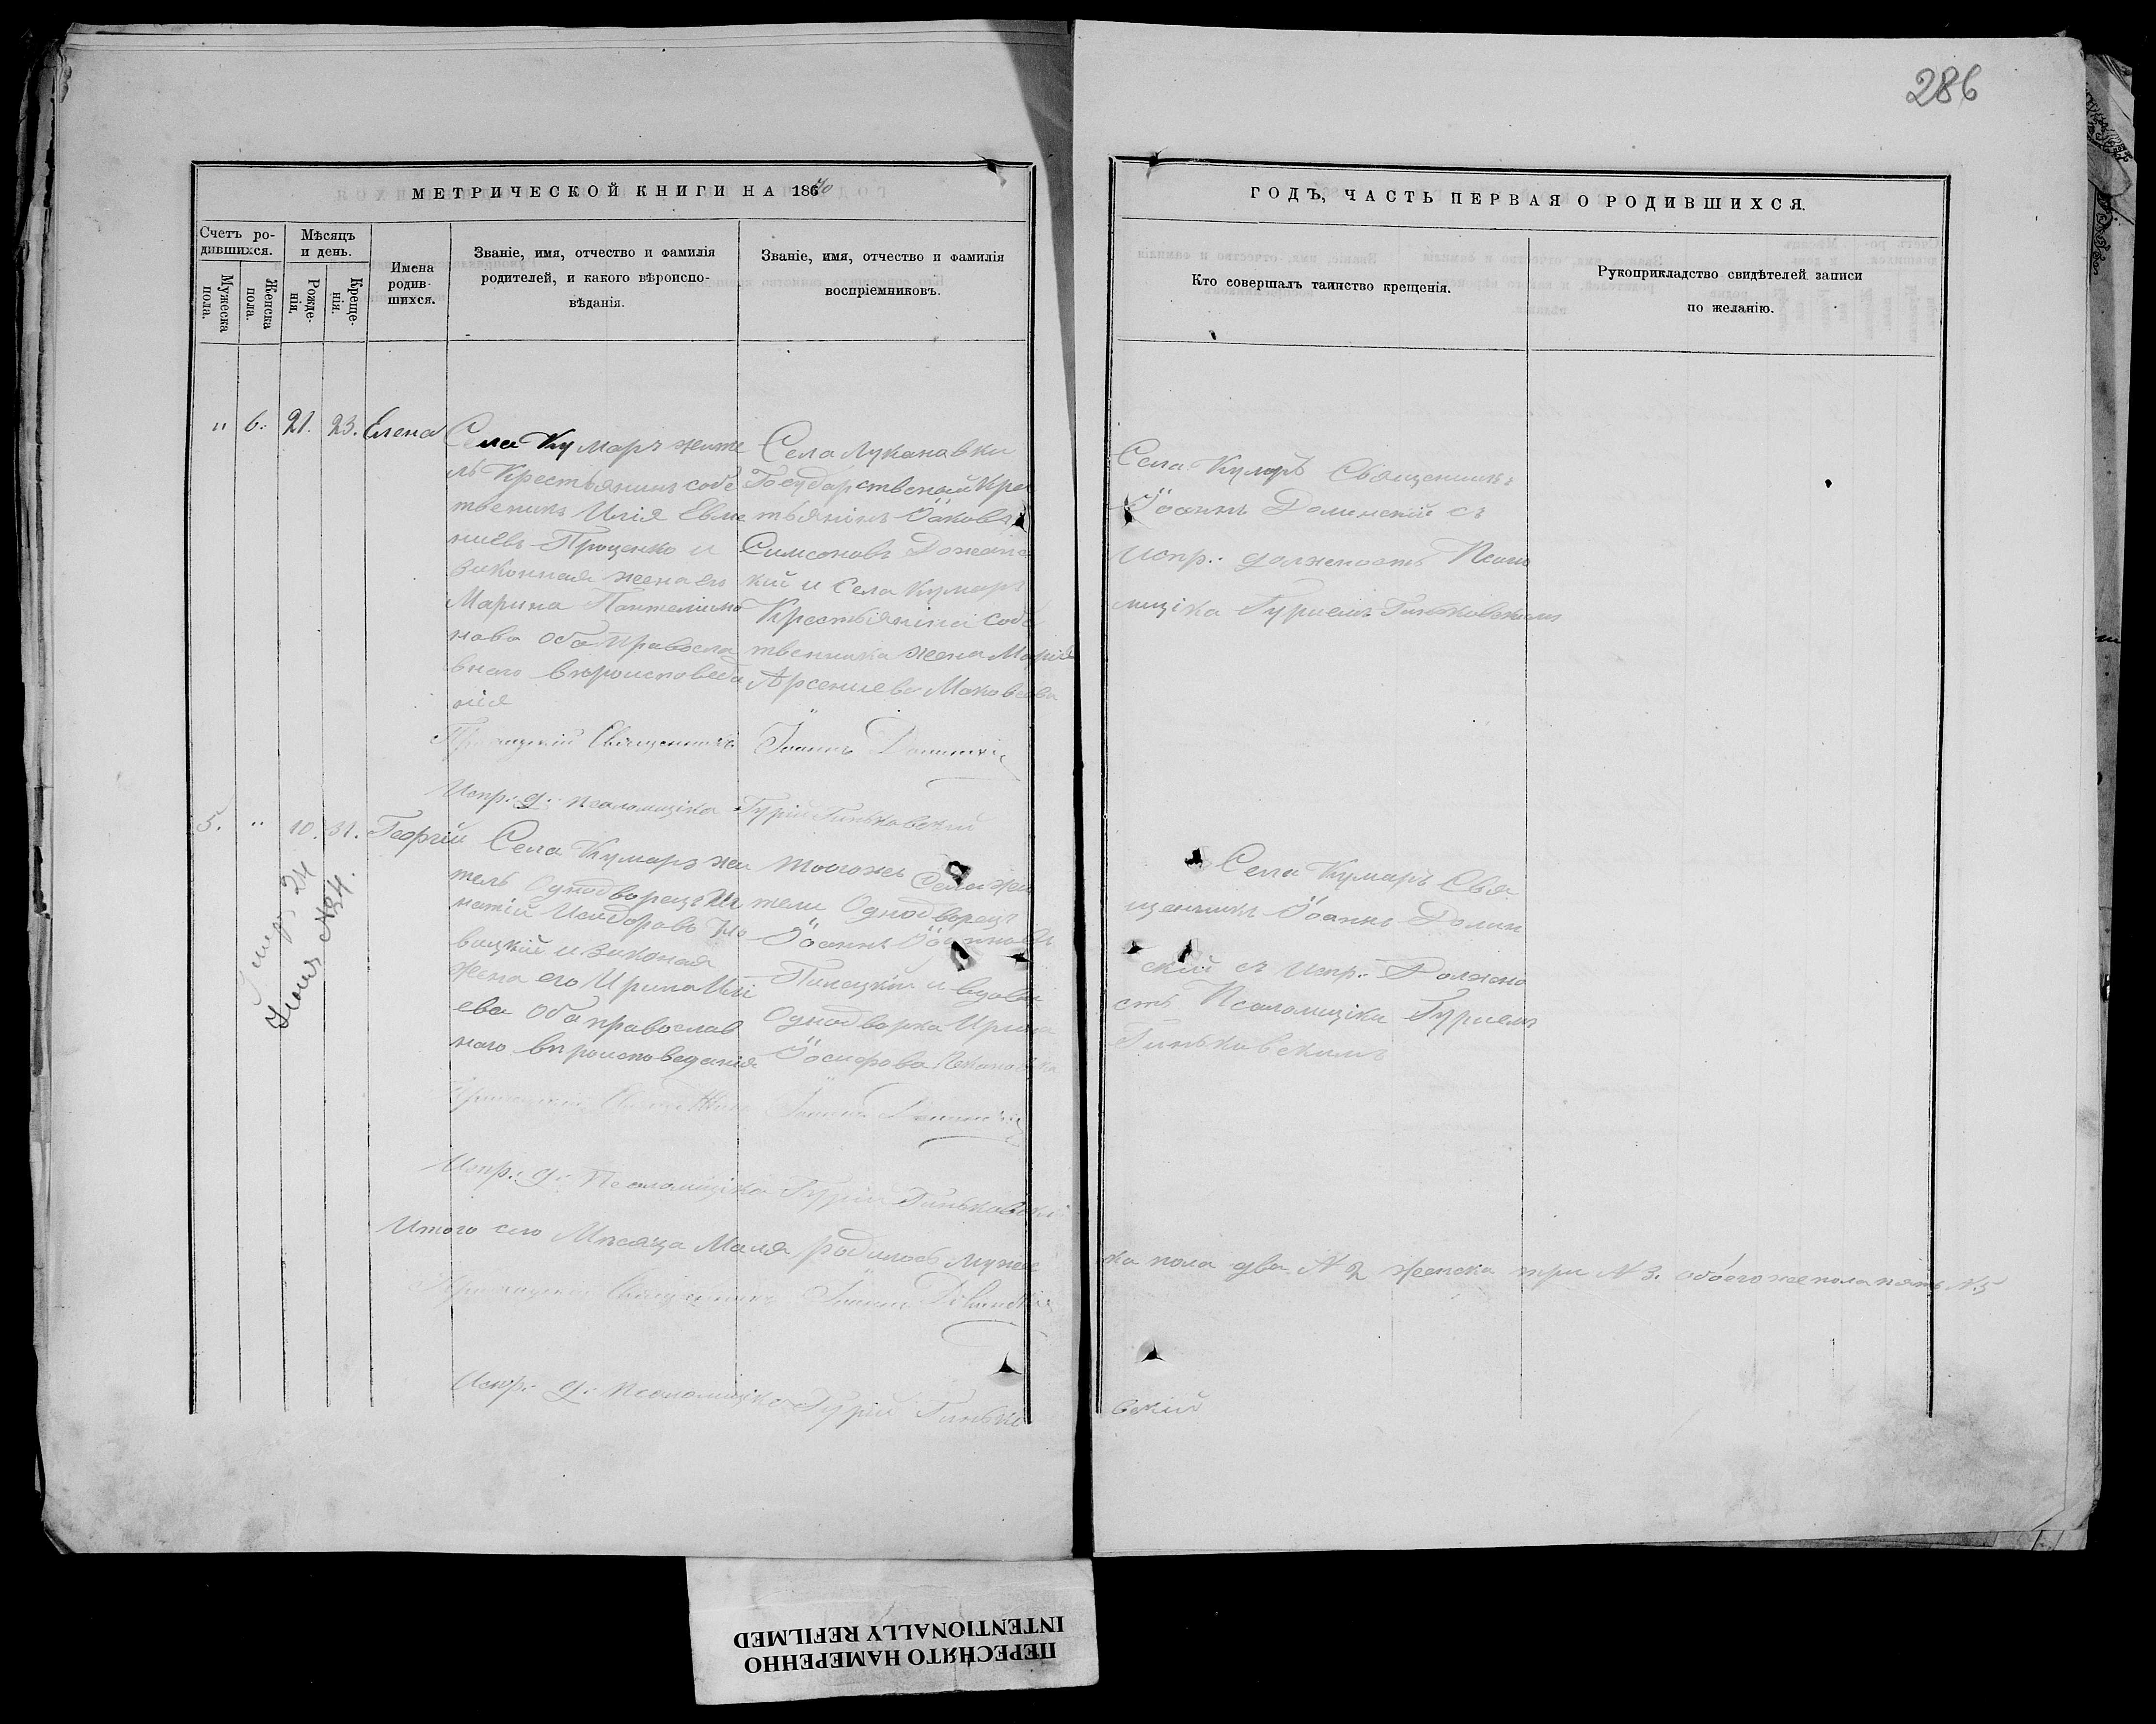 286
МЕТРИЧЕСКОЙ КНИГИ НА 1870
ГОДЪ, ЧАСТЬ ПЕРВАЯ О РОДИВШИХСЯ.
Счетъ ро-
дившихся.
Мужеска
пола.
Женска
пола.
Мѣсяцъ
и день.
Рожде-
нія.
Креще-
нія.
Имена
родив-
шихся.
Званіе, имя, отчество и фамилія
родителей, и какого вѣроиспо-
вѣданія.
Званіе, имя, отчество и фамилія
воспріемниковъ.
Кто совершалъ таинство крещенія.
Рукоприкладство свидѣтелей записи
по желанію.
" 6. 21. 23. Елена
Села Кумаръ жите
ль Крестьянинъ собс
твеникъ Илія Евме
ніевъ Проценко и
законная жена его
Марина Пантелимо
нова оба правосла
внаго вѣроисповеда
нія
Села Лукановки
Государственый Крес
тьянинъ Іаковъ
Симеоновъ
кій и Села Кумаръ
Крестьянина собс
твенника жена Марія
Арсениева Маковеева
Села Кумаръ Священникъ
Іоаннъ Долинскій съ
Испр: должность Псало
мщіка Гуриемъ Гиньковскимъ
Приходскій Священникъ Іоаннъ Долинскій
Испр: д: псаломщіка Гурій Гиньковскій
5. " 10. 31. Георгій
24
Іюня №34.
Села Кумаръ жи
тель Однодворецъ Иг
натій Исидоровъ
вицкій и законая
жена его Ирина Илі
ева оба православ
наго вѣроисповеданія
тогоже Села жи
тели Однодворецъ
Іоаннъ Іоанновъ
и вдова
Однодворка Ирина
Іосифова
Села Кумаръ Свя
щенникъ Іоаннъ Долин
скій съ Испр: Должно
сть Псаломщіка Гуриемъ
Гиньковскимъ
Приходскій Священникъ Іоаннъ Долинскій
Испр: д: Псаломщіка Гурій Гиньковскій
Итого сего Мѣсяца Маія родилось мужес
ка пола два №2 женска три №3. обоего же пола пять №5
Приходскій Священникъ Іоаннъ Долинскій
Испр: д: псаломщіка Гурій Гинько
вскій
ПЕРЕСНЯТО НАМЕРЕННО
INTENTIONALLY REFILMED